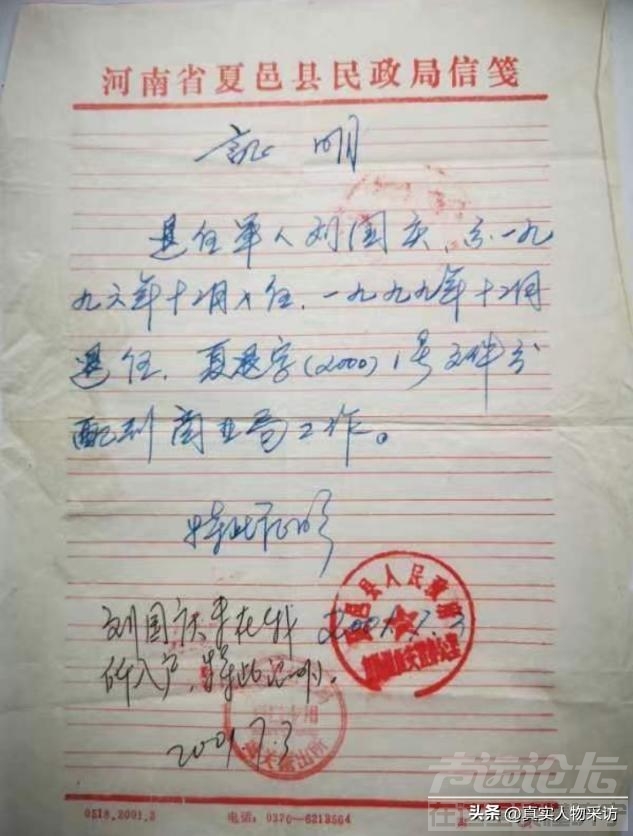 河南省夏邑县民政局信笺
証明
退伍军人刘国庆,东一九
九六年十二月入伍,一九九九年十二月
退伍,夏退字(2000)1号文件分
配到商业局工作。
特此证明
县人民政府
2001.7.3
刘国庆未在我
所入户,特此证明。
2001.7.3
0518.2001.3
电话:0370-6213564
头条 @真实人物采访